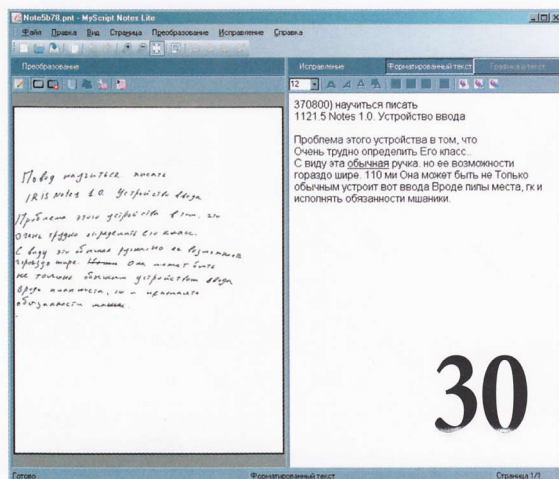 Note5b78.pnt - MyScript Notes Lite
Файл Правка Вид Страница Преобразование Исправление Справка
Преобразование
Исправление Форматированный текст Графика и текст
12
Повод научиться писать
IRIS Notes 1.0. Устройство ввода
Проблема этого устройства в том, что
очень трудно определить его класс.
С виду это обычная ручка, но ее возможности
гораздо шире. Она может быть
не только обычным устройством ввода
вроде планшета, но и исполнять
обязанности
370800) научиться писать
1121.5 Notes 1.0. Устройство ввода
Проблема этого устройства в том, что
Очень трудно определить Его класс..
С виду эта обычная ручка. но ее возможности
гораздо шире. 110 ми Она может быть не Только
обычным устроит вот ввода Вроде пипы места, гк и
исполнять обязанности мшаники.
30
Готово Форматированный текст Страница 1/1